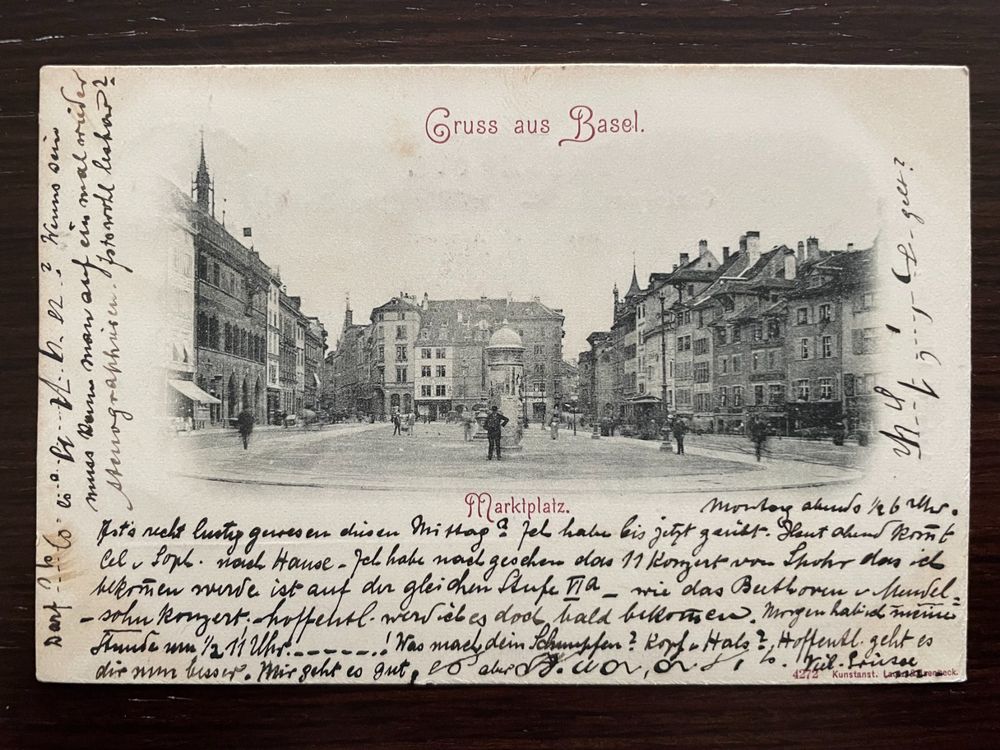 Gruss aus Basel.
Marktplatz.
Montag abends ½6 Uhr.
recht lustig gewesen diesen Mittag? Ich habe bis jetzt geübt. Heut abend kom̅t
Cel u Soph. nach Hause – Ich habe nachgesehen das 11 Konzert von Spohr das ich
bekom̅en werde ist auf der gleichen Stufe VIa – wie das Beethoven u Mendel-
sohn Konzert. hoffentl. werd ich es doch bald bekom̅en. Morgen hab ich meine
Stunde um ½ 11 Uhr. – – – – – ! Was macht dein Schnupfen? Kopf u Hals? Hoffentl. geht es
dir nun besser. Mir geht es gut, aber
Viel. Grüsse
4272 Kunstanst.
Wenns sein
muss kann man auf ein mal wieder
stenographieren.
gell?
Darf